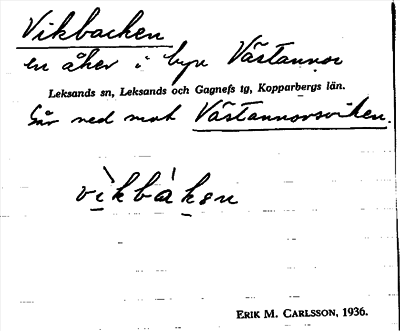 Vikbacken
en åker i byn Västannor
Leksands sn, Leksands och Gagnefs tg, Kopparbergs län.
Går ned mot Västannorsviken.
vìkbàkən
ERIK M. CARLSSON, 1936.